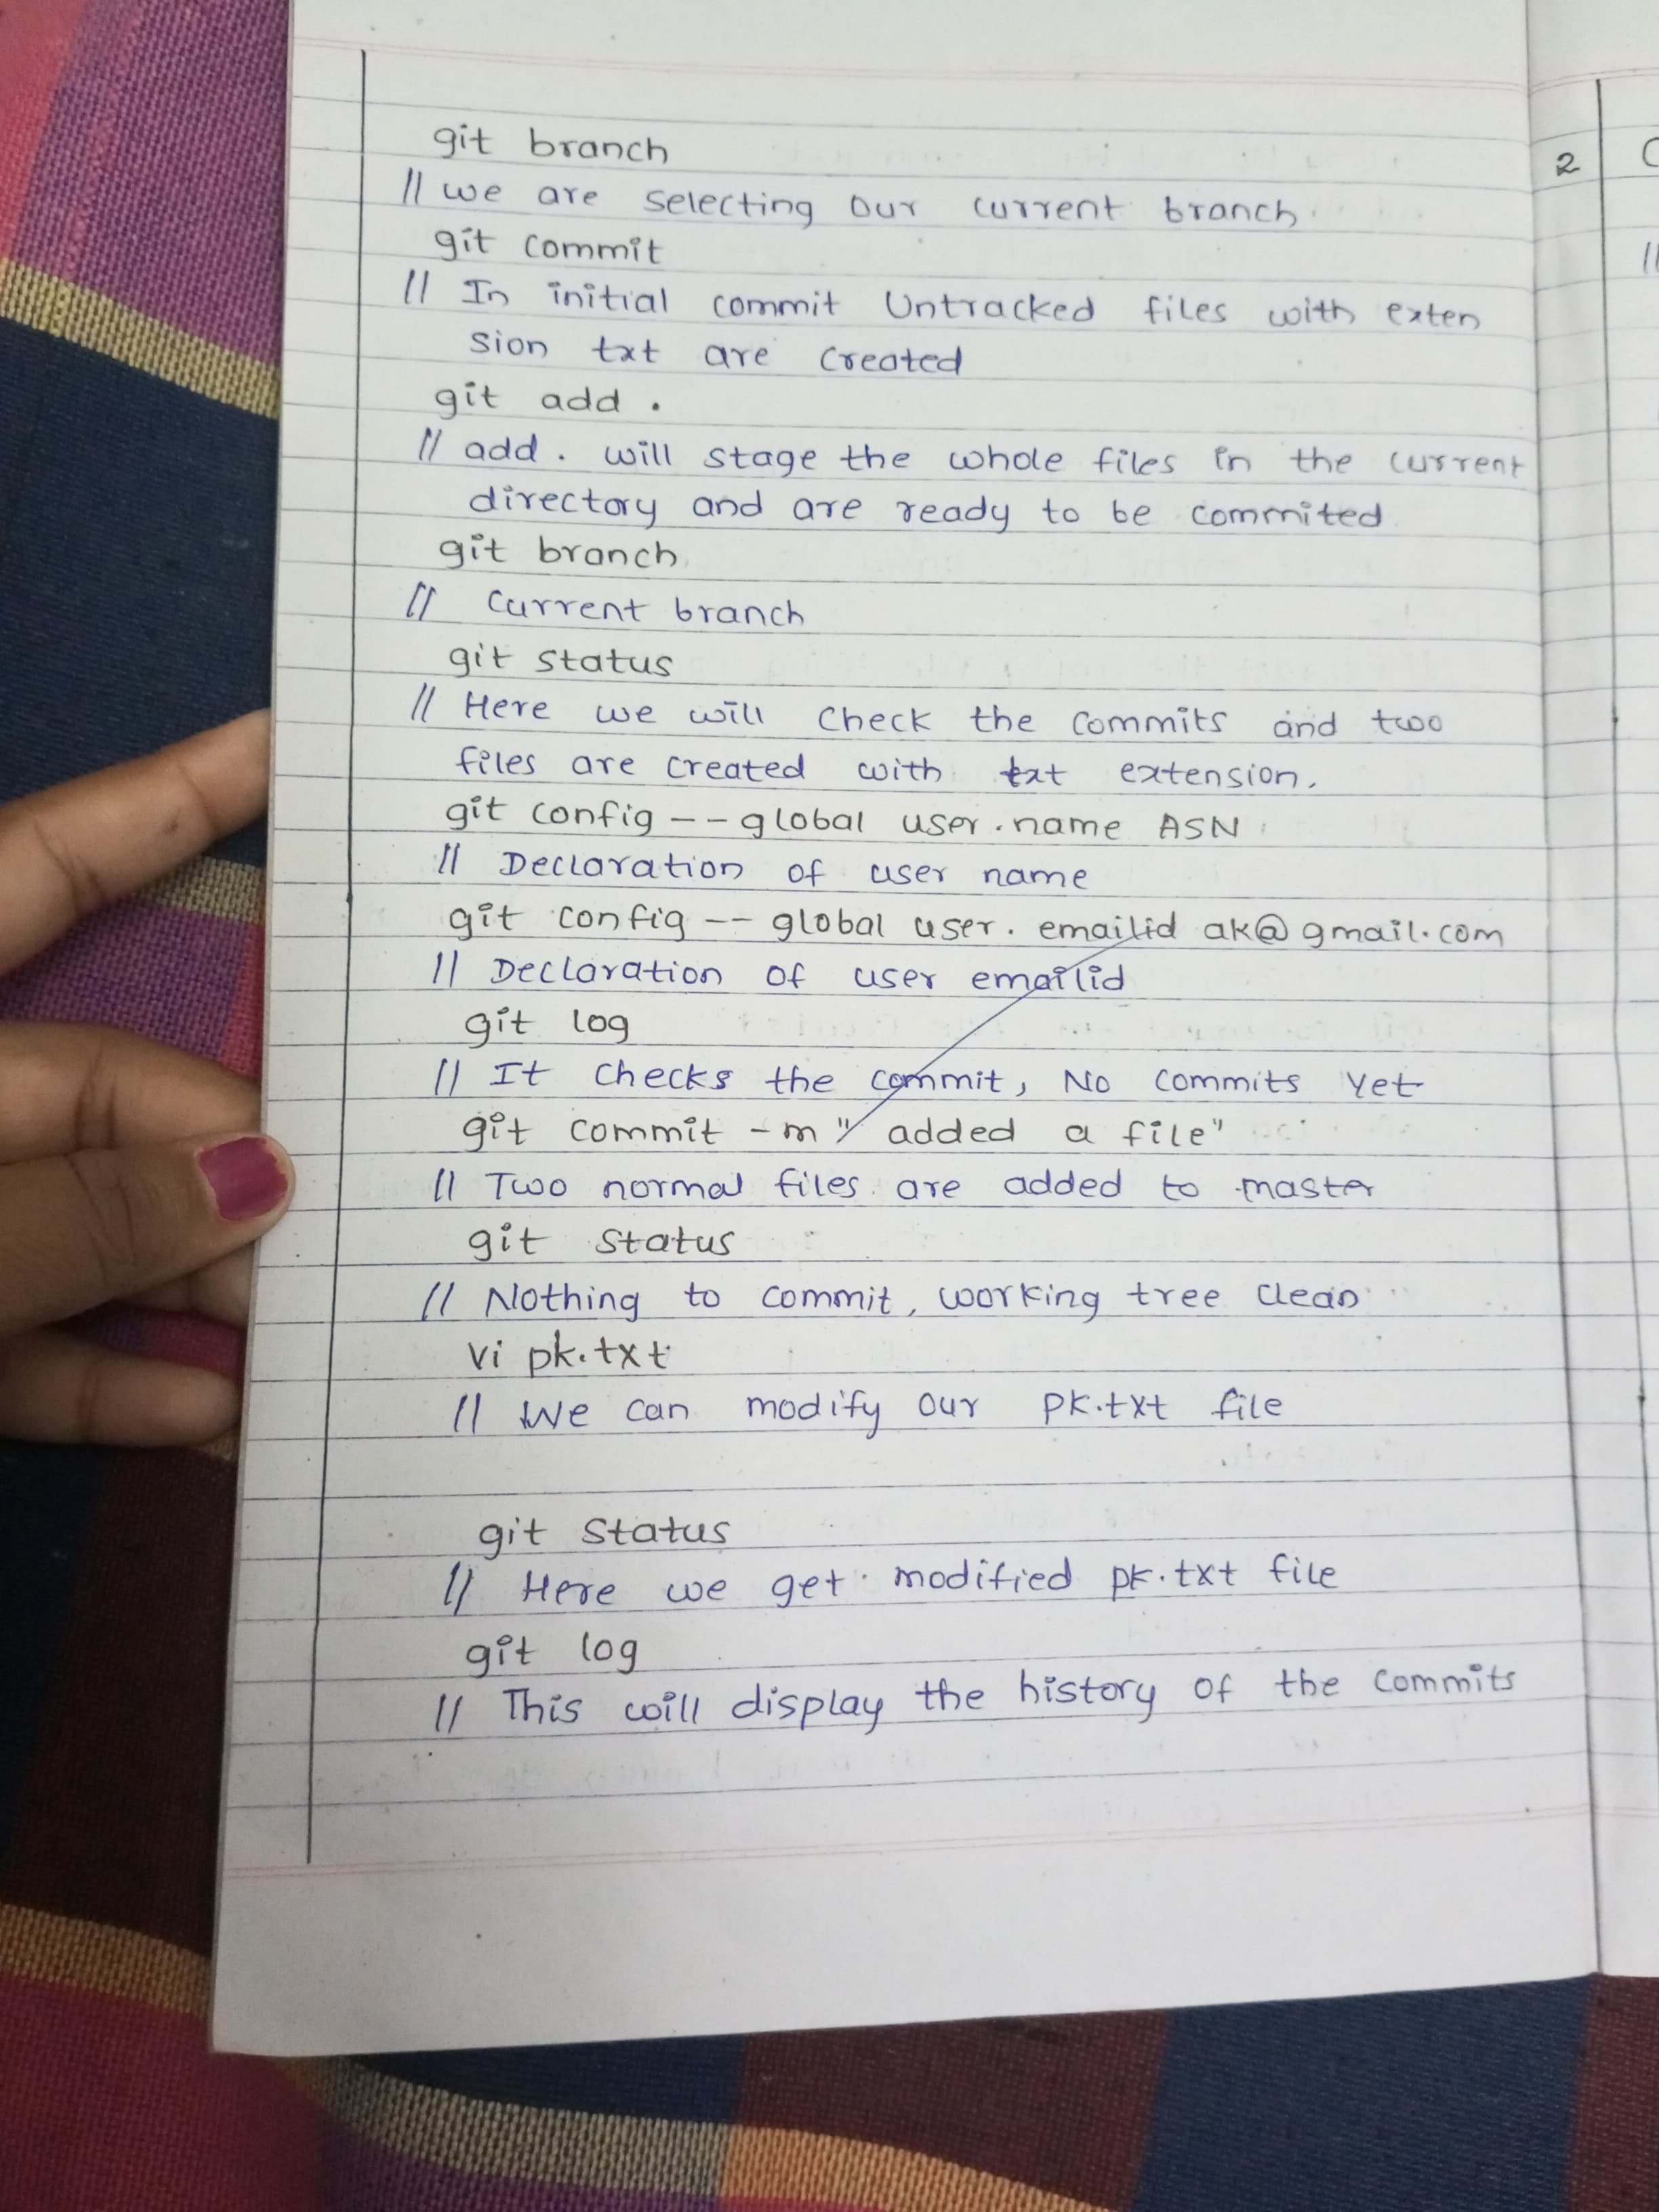 git branch
// we are selecting our current branch
git commit
// In initial commit Untracked files with exten
sion txt are created
git add .
// add . will stage the whole files in the current
directory and are ready to be commited
git branch
// current branch
git status
// Here we will check the commits and two
files are created with txt extension.
git config -- global user.name ASN
// Declaration of user name
git config -- global user. emailid ak@gmail.com
// Declaration of user emailid
git log
// It checks the commit, No commits yet
git commit -m " added a file"
// Two normal files are added to master
git status
// Nothing to commit, working tree clean
vi pk.txt
// We can modify our pk.txt file
git status
// Here we get modified pk.txt file
git log
// This will display the history of the commits
2